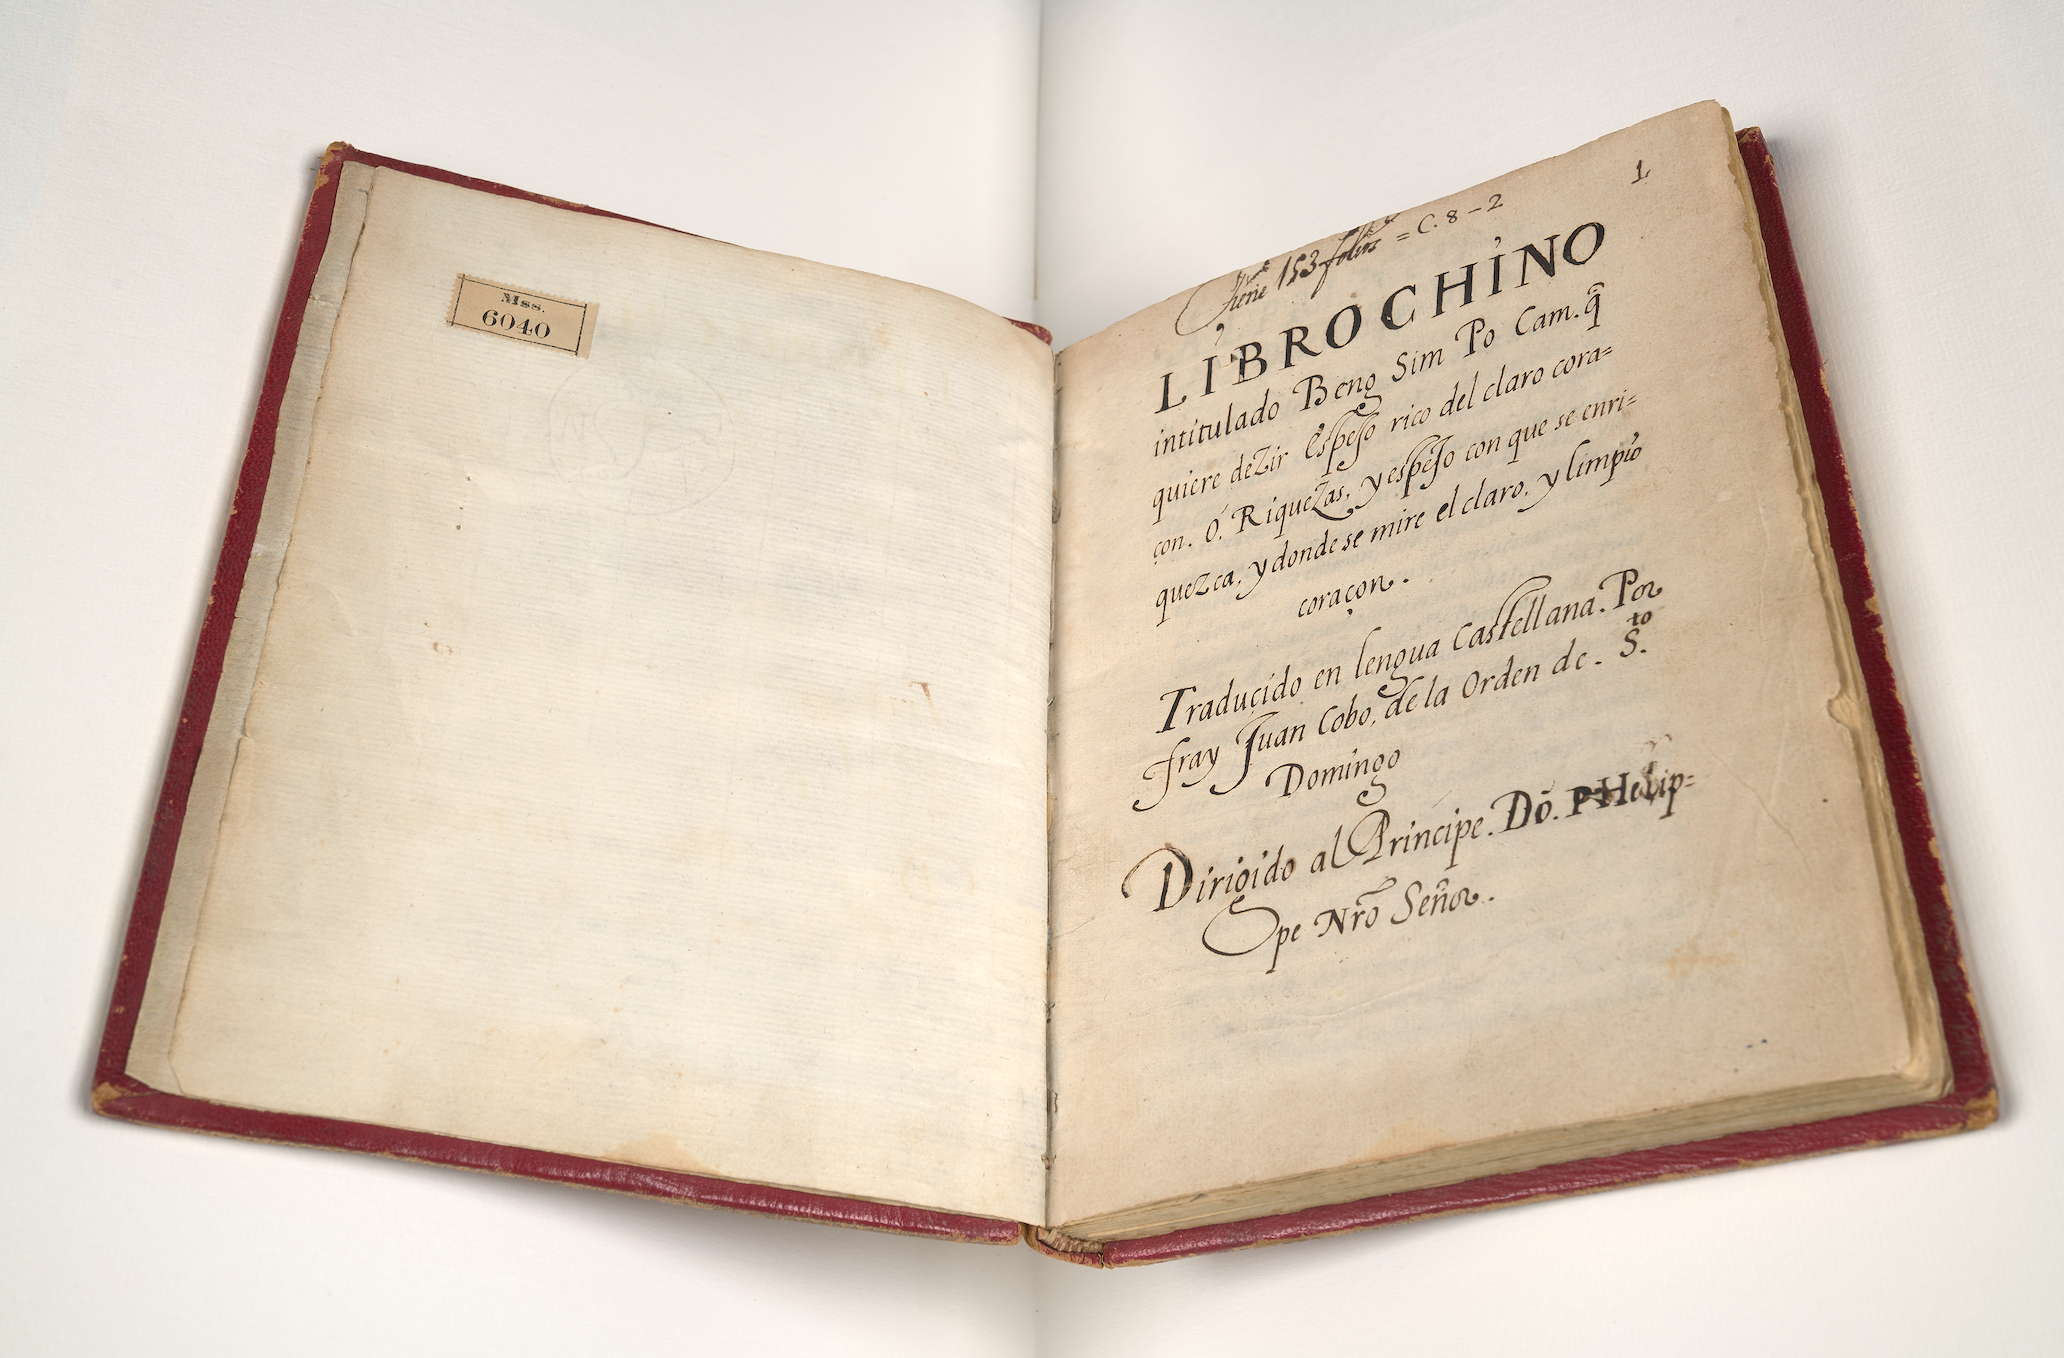 Mss.
6040
1
Tiene 153 folios = C. 8 - 2
LIBRO CHINO
intitulado Beng Sim Po Cam. q̃
quiere deZir Espejo rico del claro cora=
çon. O. RiqueZas, y espejo con que se enri=
queZca, y donde se mire el claro, y limpio
coraçon.
Traduçido en lengua Castellana. Por
fray Juan Cobo, de la Orden de. S.to
Domingo
Dirigido al Principe. Dõ. PHelip=
pe Nr̃o Señor.